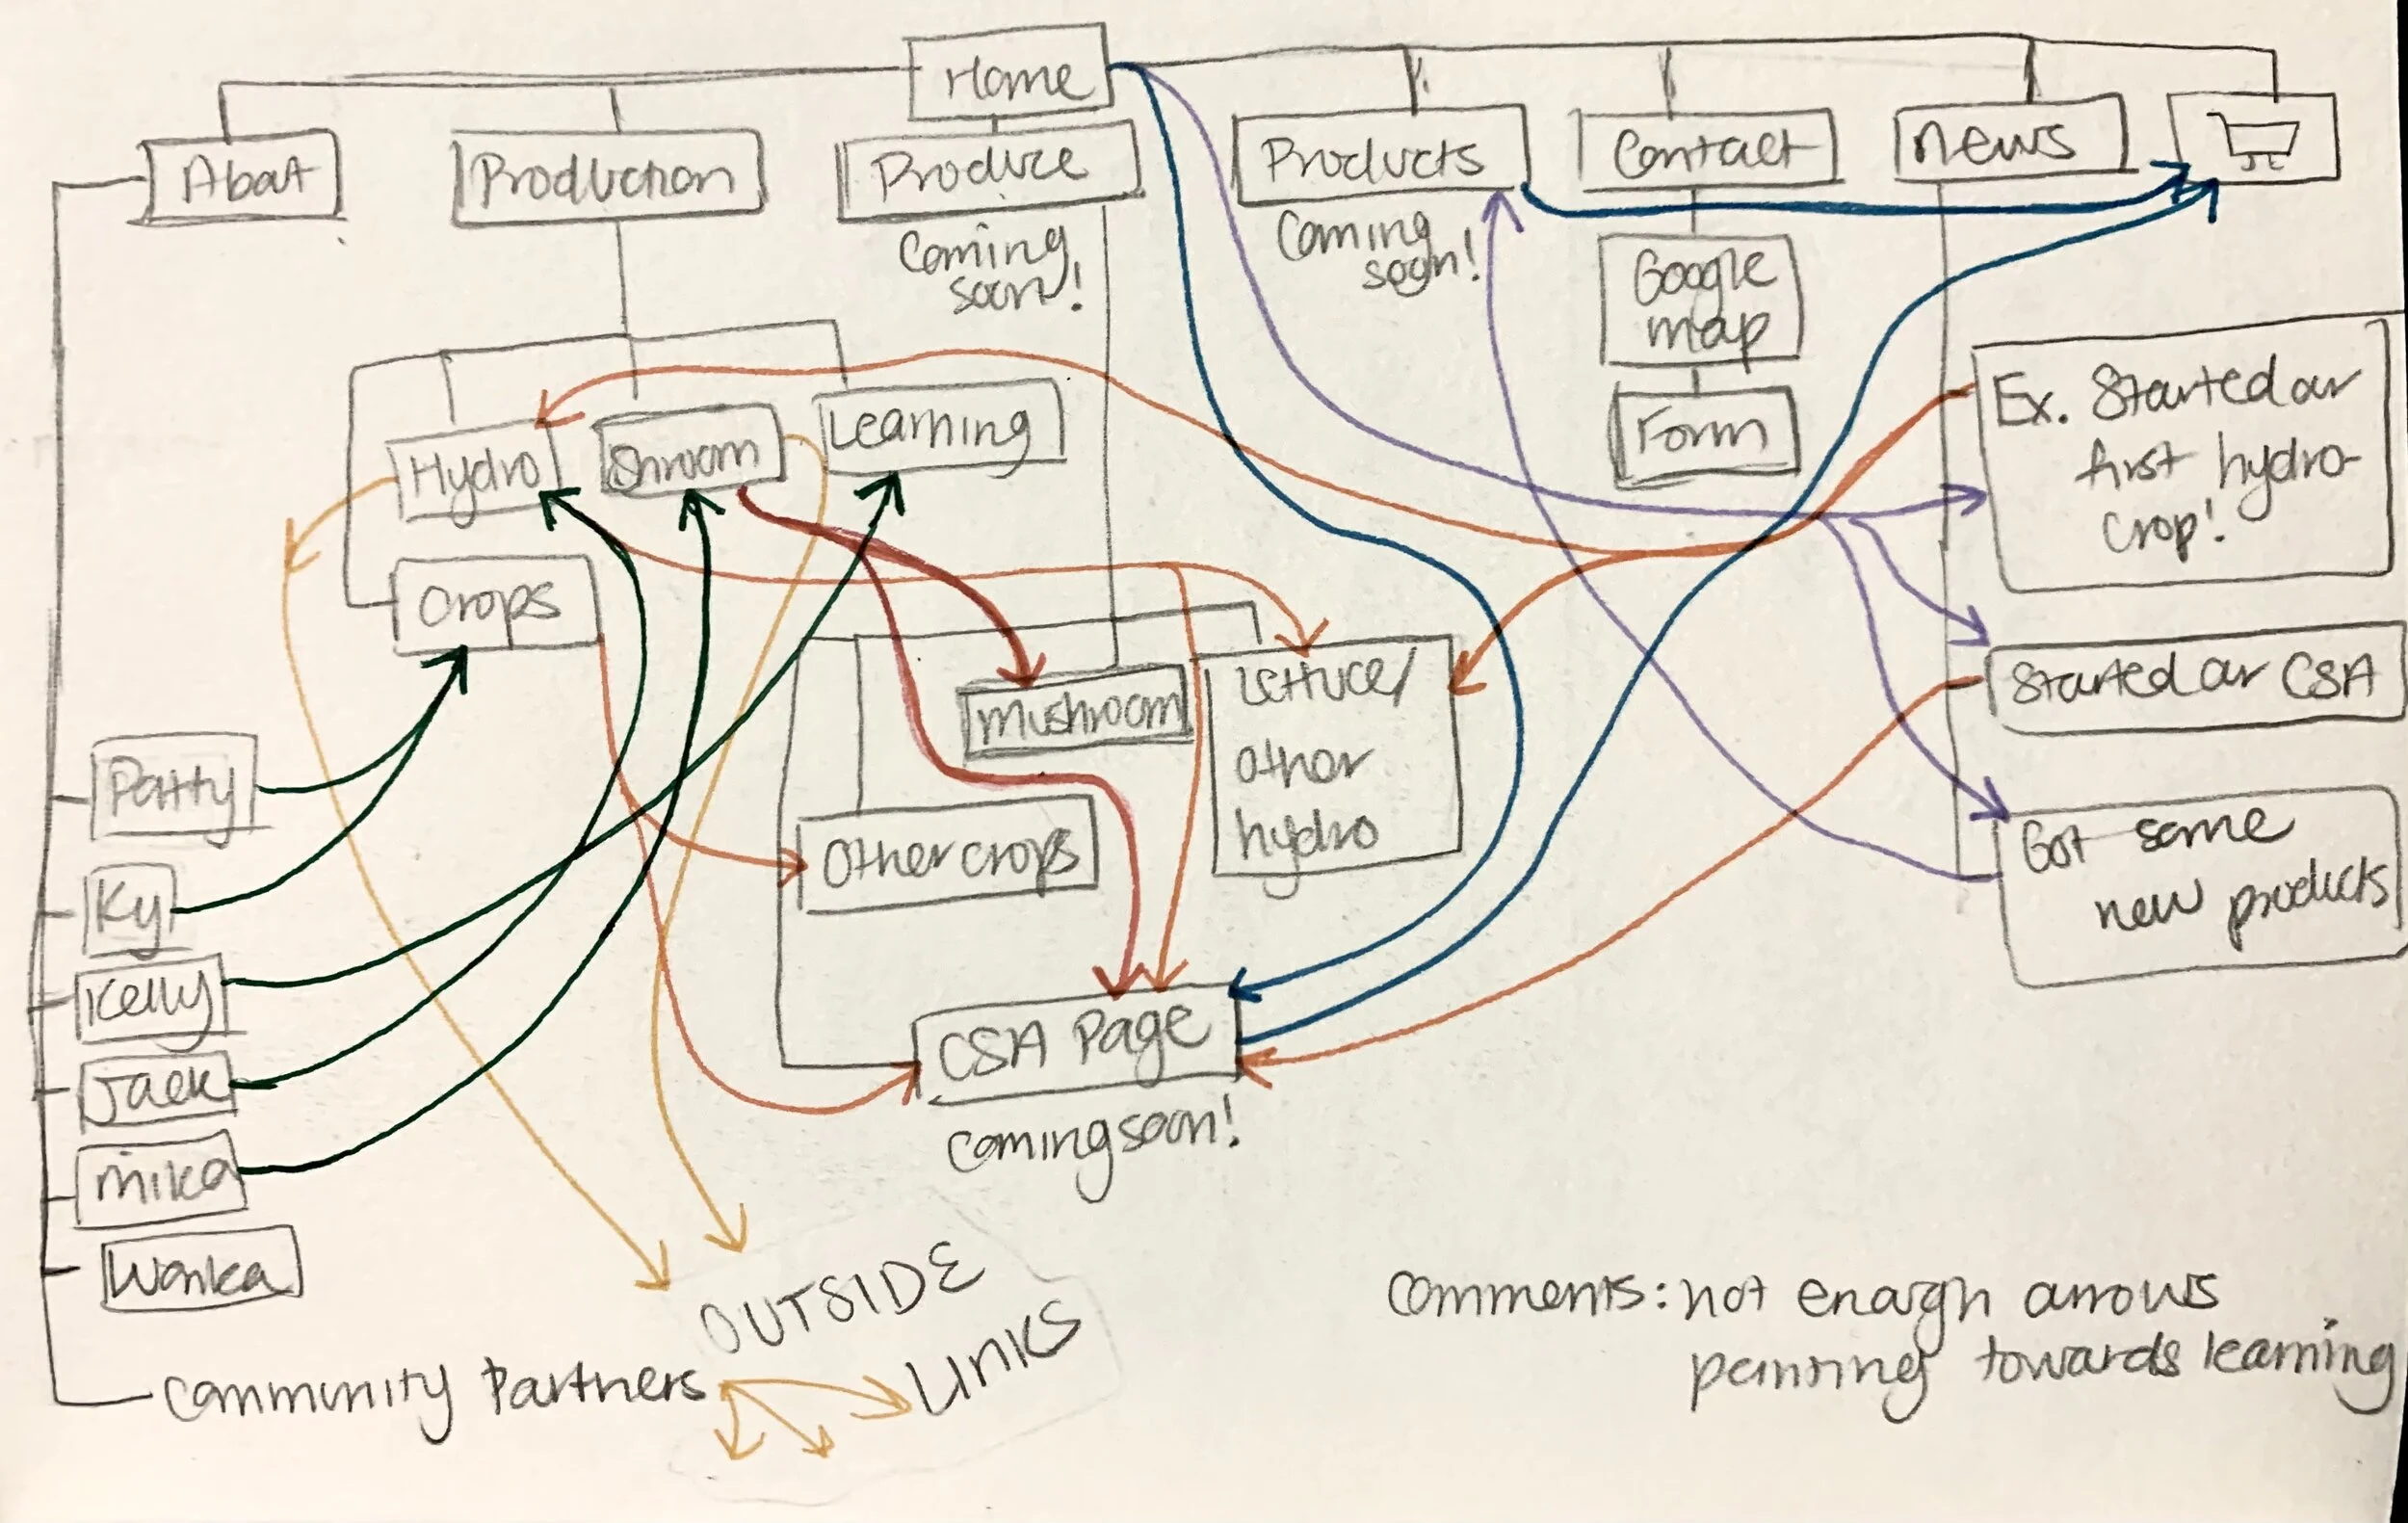 Home
About
Production
Produce
Products
Contact
news
Coming
soon!
Coming
soon!
Google
map
Form
Hydro
Shroom
Learning
Crops
Ex. Started our
first hydro-
crop!
Started our CSA
Got some
new products
mushroom
Lettuce/
other
hydro
Other crops
CSA Page
Coming soon!
Patty
Ky
Kelly
Jack
mika
Wonka
Community Partners
OUTSIDE
LINKS
Comments: not enough arrows
pointing towards learning